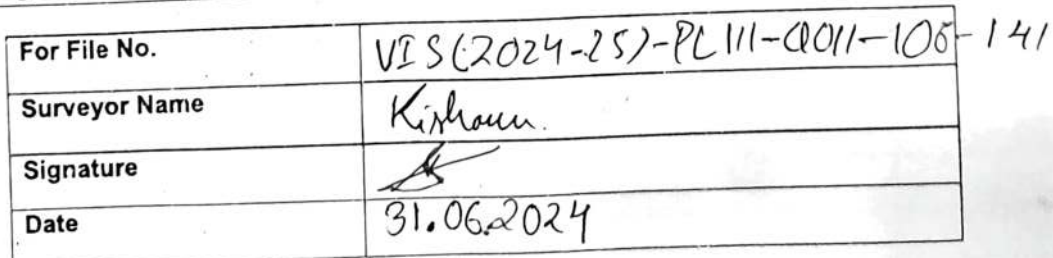 For File No. VIS(2024-25)-PL111-Q011-106-141
Surveyor Name Kishaun.
Signature
Date 31.06.2024